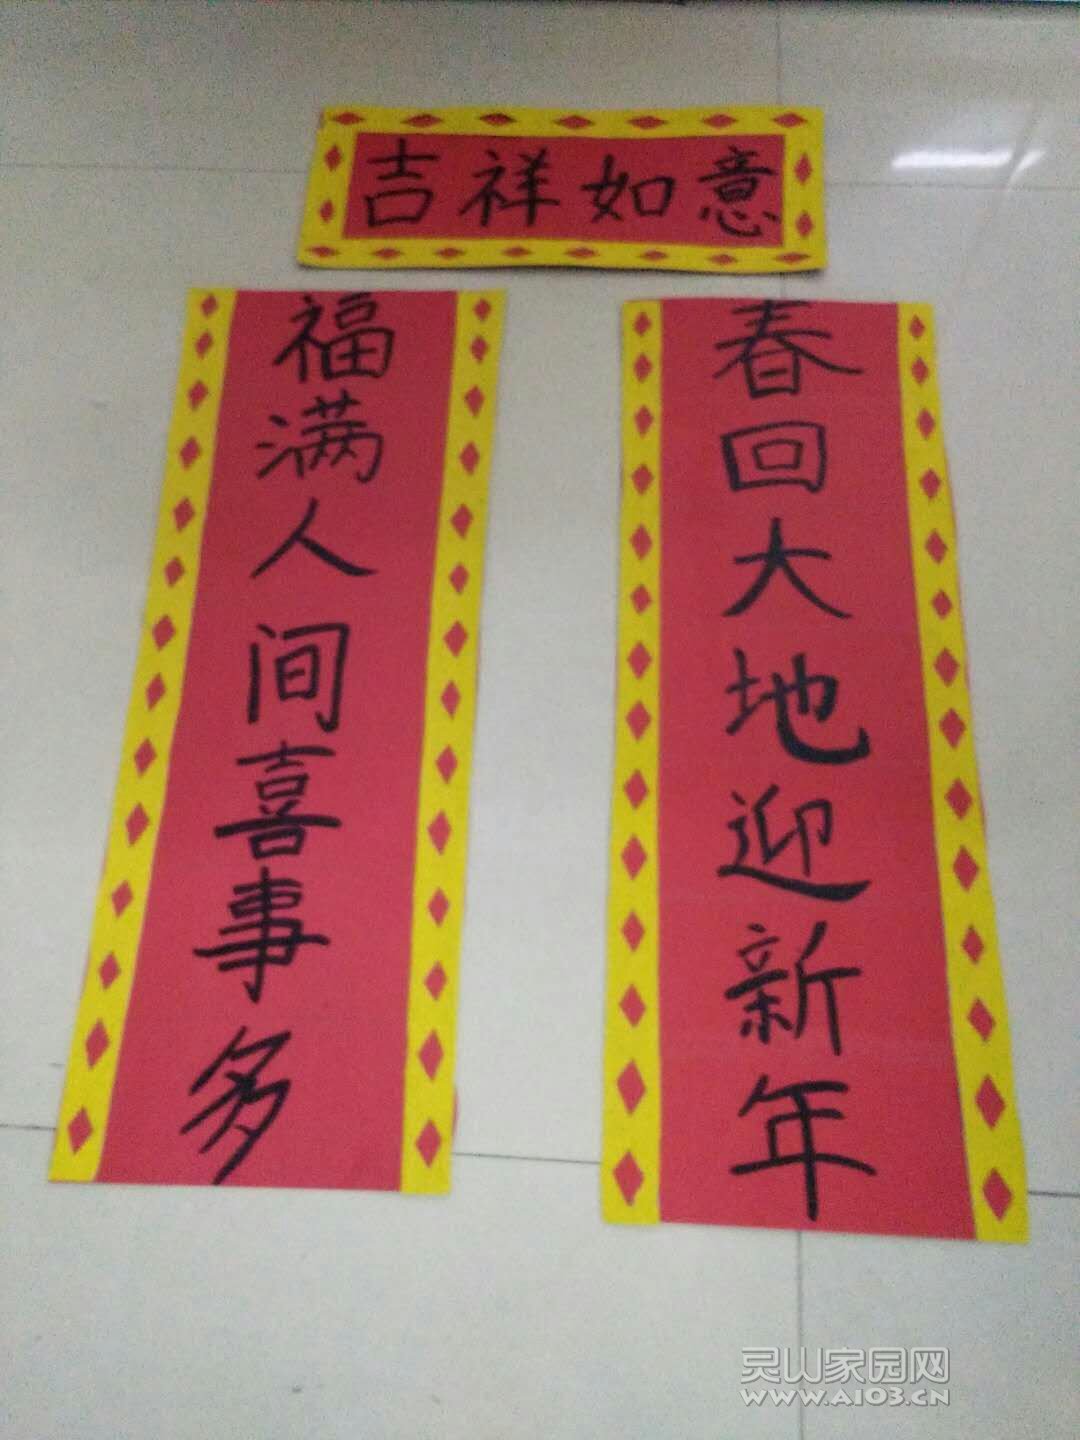 吉祥如意
福满人间喜事多
春回大地迎新年
灵山家园网
WWW.A103.CN